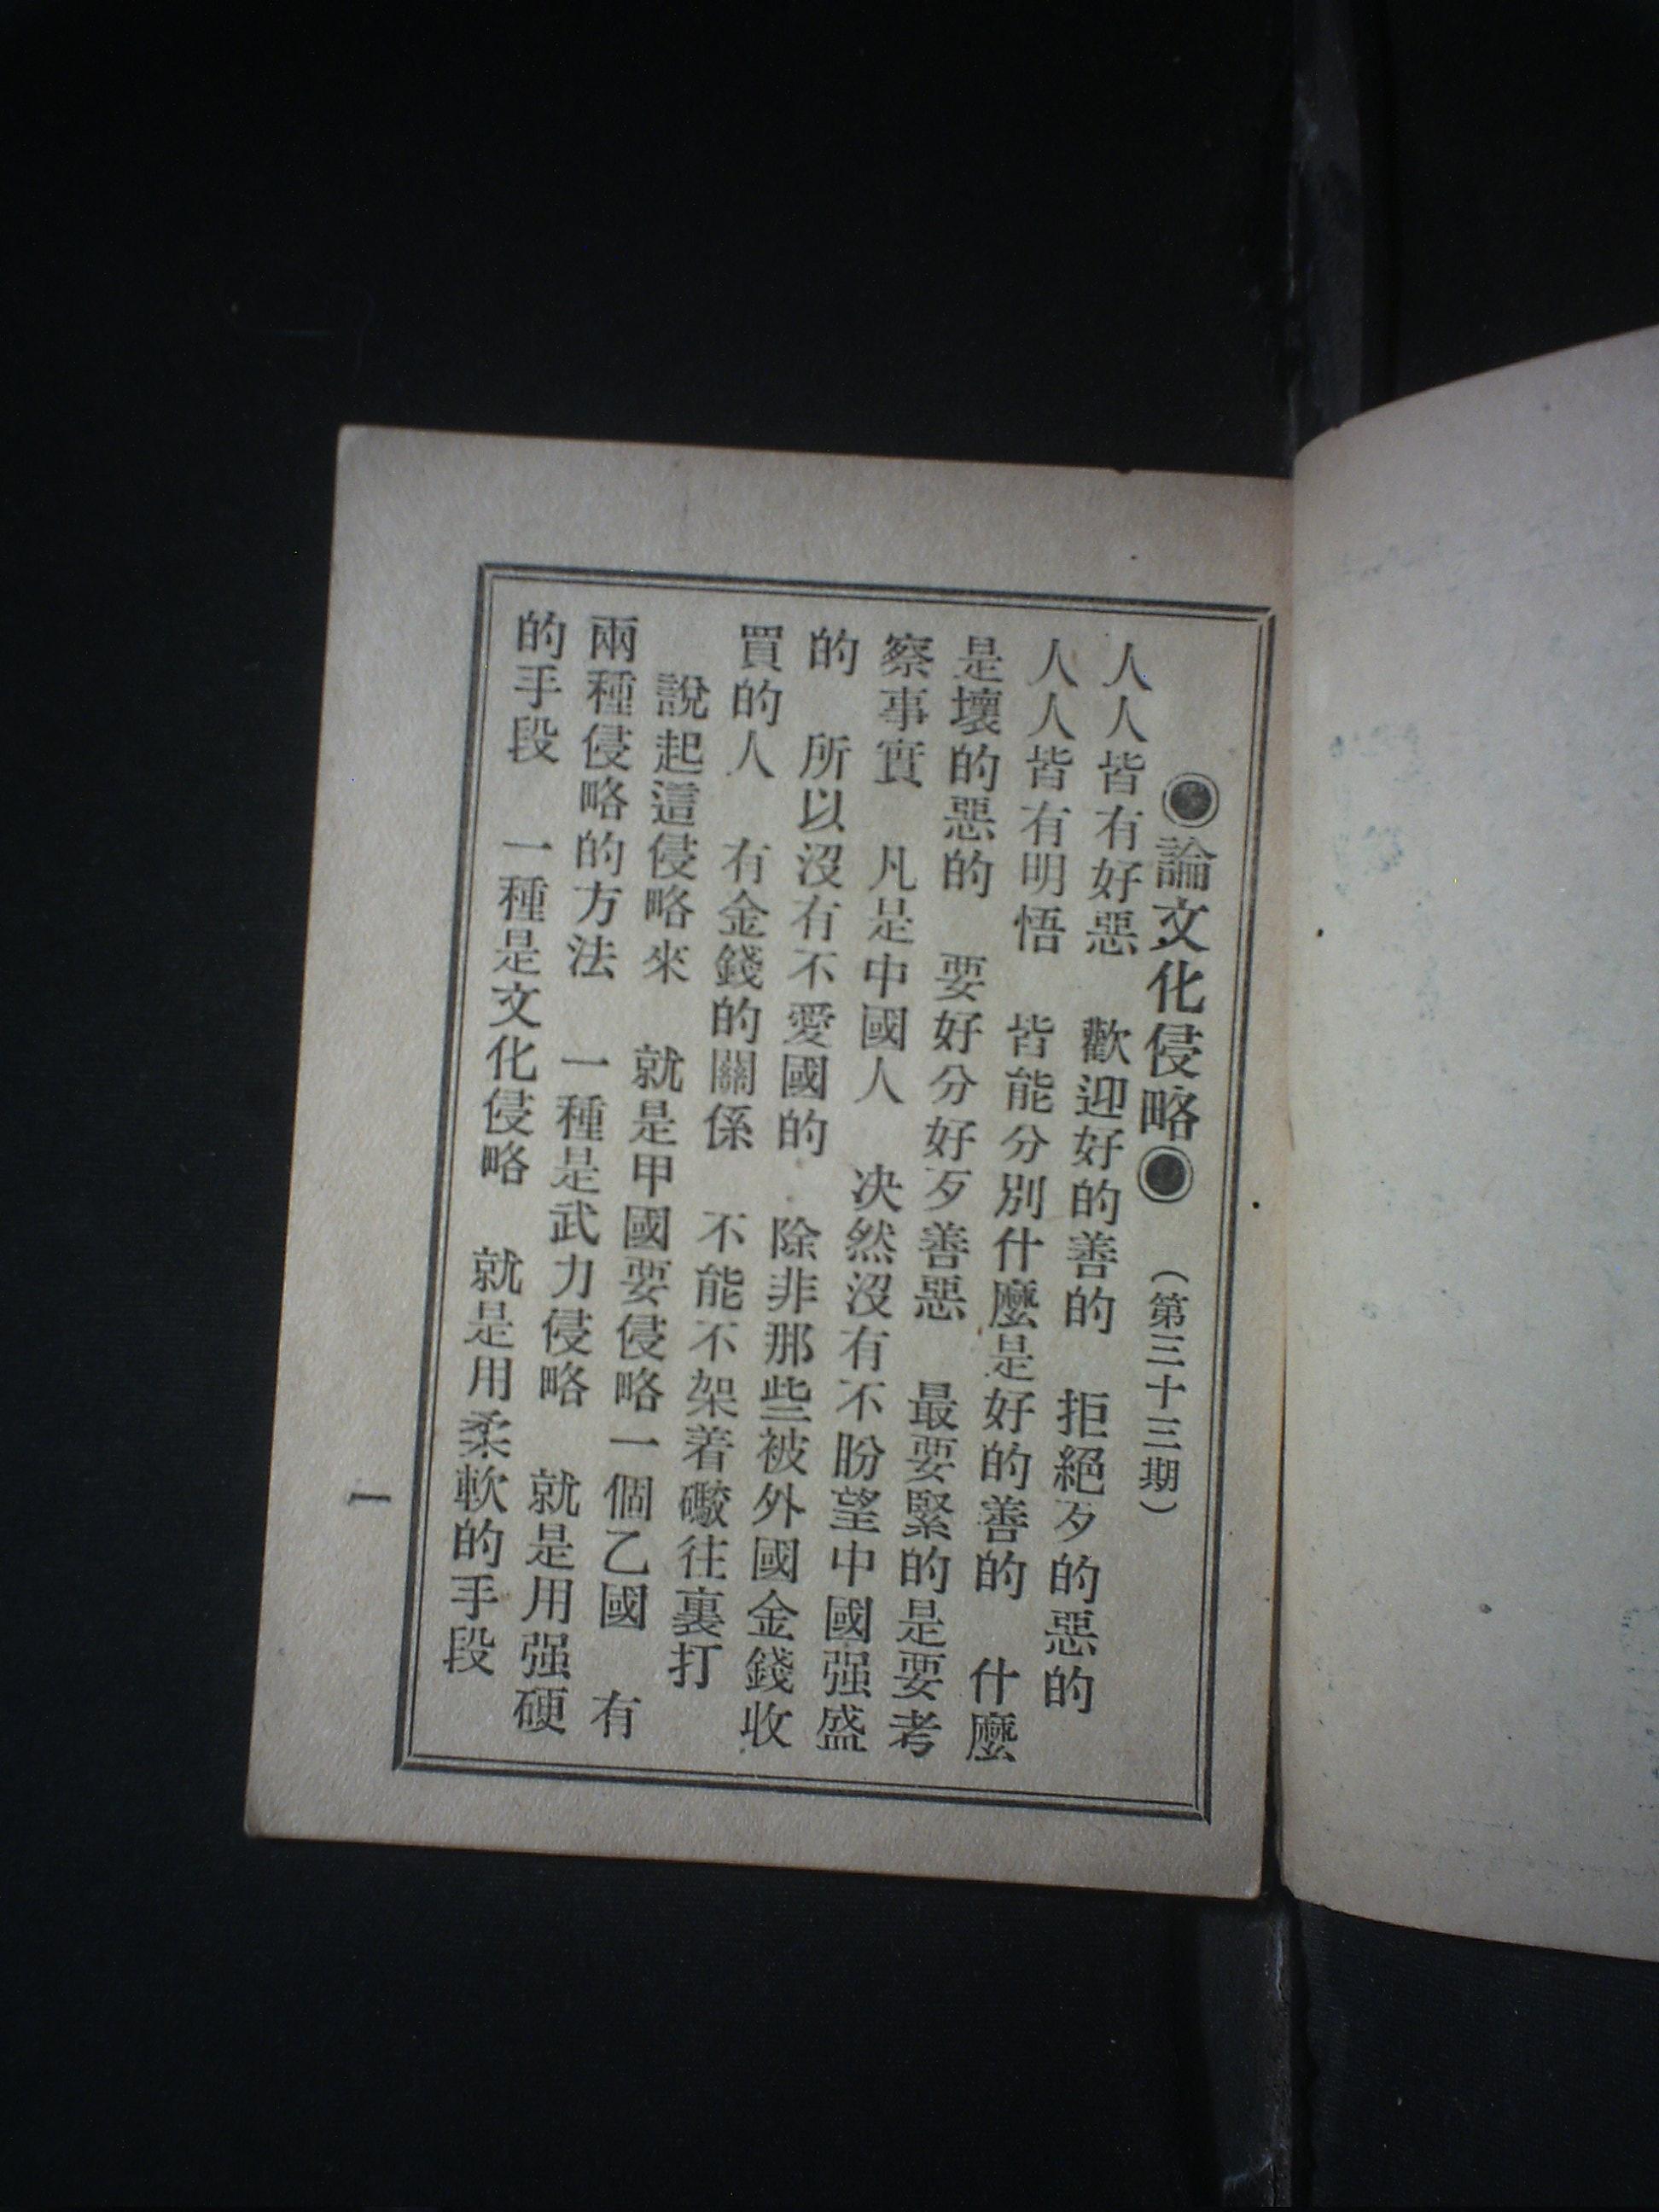 ◉論文化侵略◉ （第三十三期）
人人皆有好惡　歡迎好的善的　拒絕歹的惡的
人人皆有明悟　皆能分別什麼是好的善的　什麼
是壞的惡的　要好分好歹善惡　最要緊的是要考
察事實　凡是中國人　决然沒有不盼望中國强盛
的　所以沒有不愛國的　除非那些被外國金錢收
買的人　有金錢的關係　不能不架着礮往裏打
說起這侵略來　就是甲國要侵略一個乙國　有
兩種侵略的方法　一種是武力侵略　就是用强硬
的手段　一種是文化侵略　就是用柔軟的手段
一